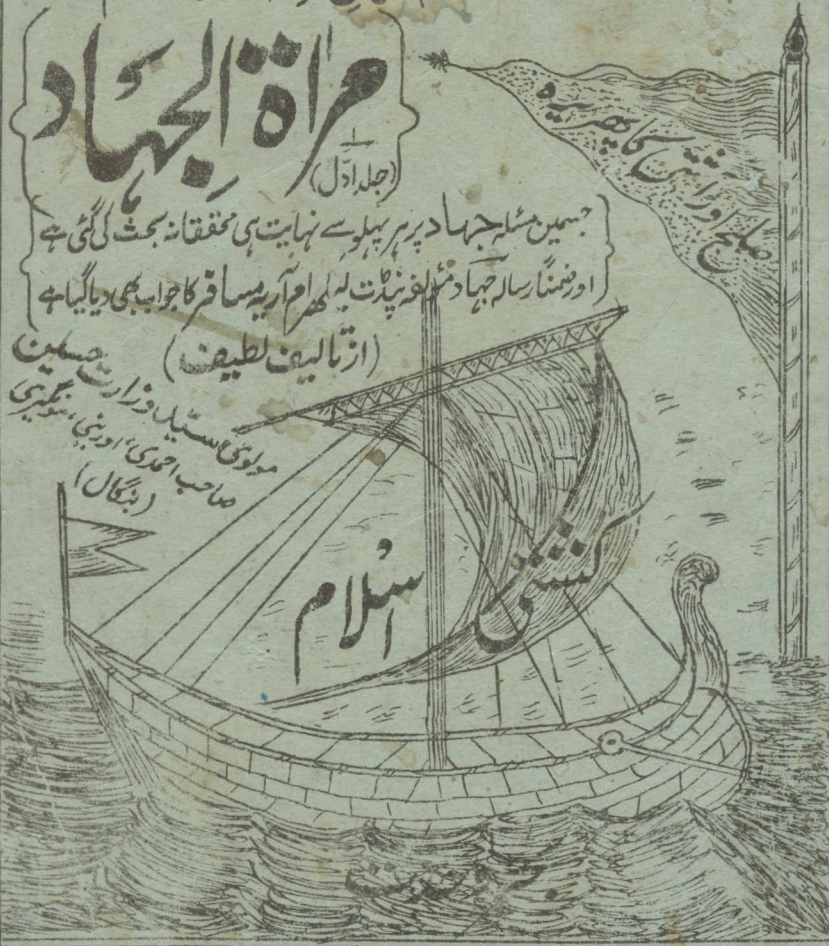 مراۃ الجہاد
(جلد اوّل)
جسمین مسئلہ جہاد پر ہر پہلو سے نہایت ہی محققانہ بحث کی گئی ہے
اور ضمناً رسالہ جہاد مؤلفہ پنڈت لیکھرام آریہ مسافر کا جواب بھی دیا گیا ہے
(از تالیف لطیف)
مولوی سید وزارت حسین
صاحب احمدی، اورینی، مونگیری
(بنگال)
کا پھریرہ
کشتی اسلام